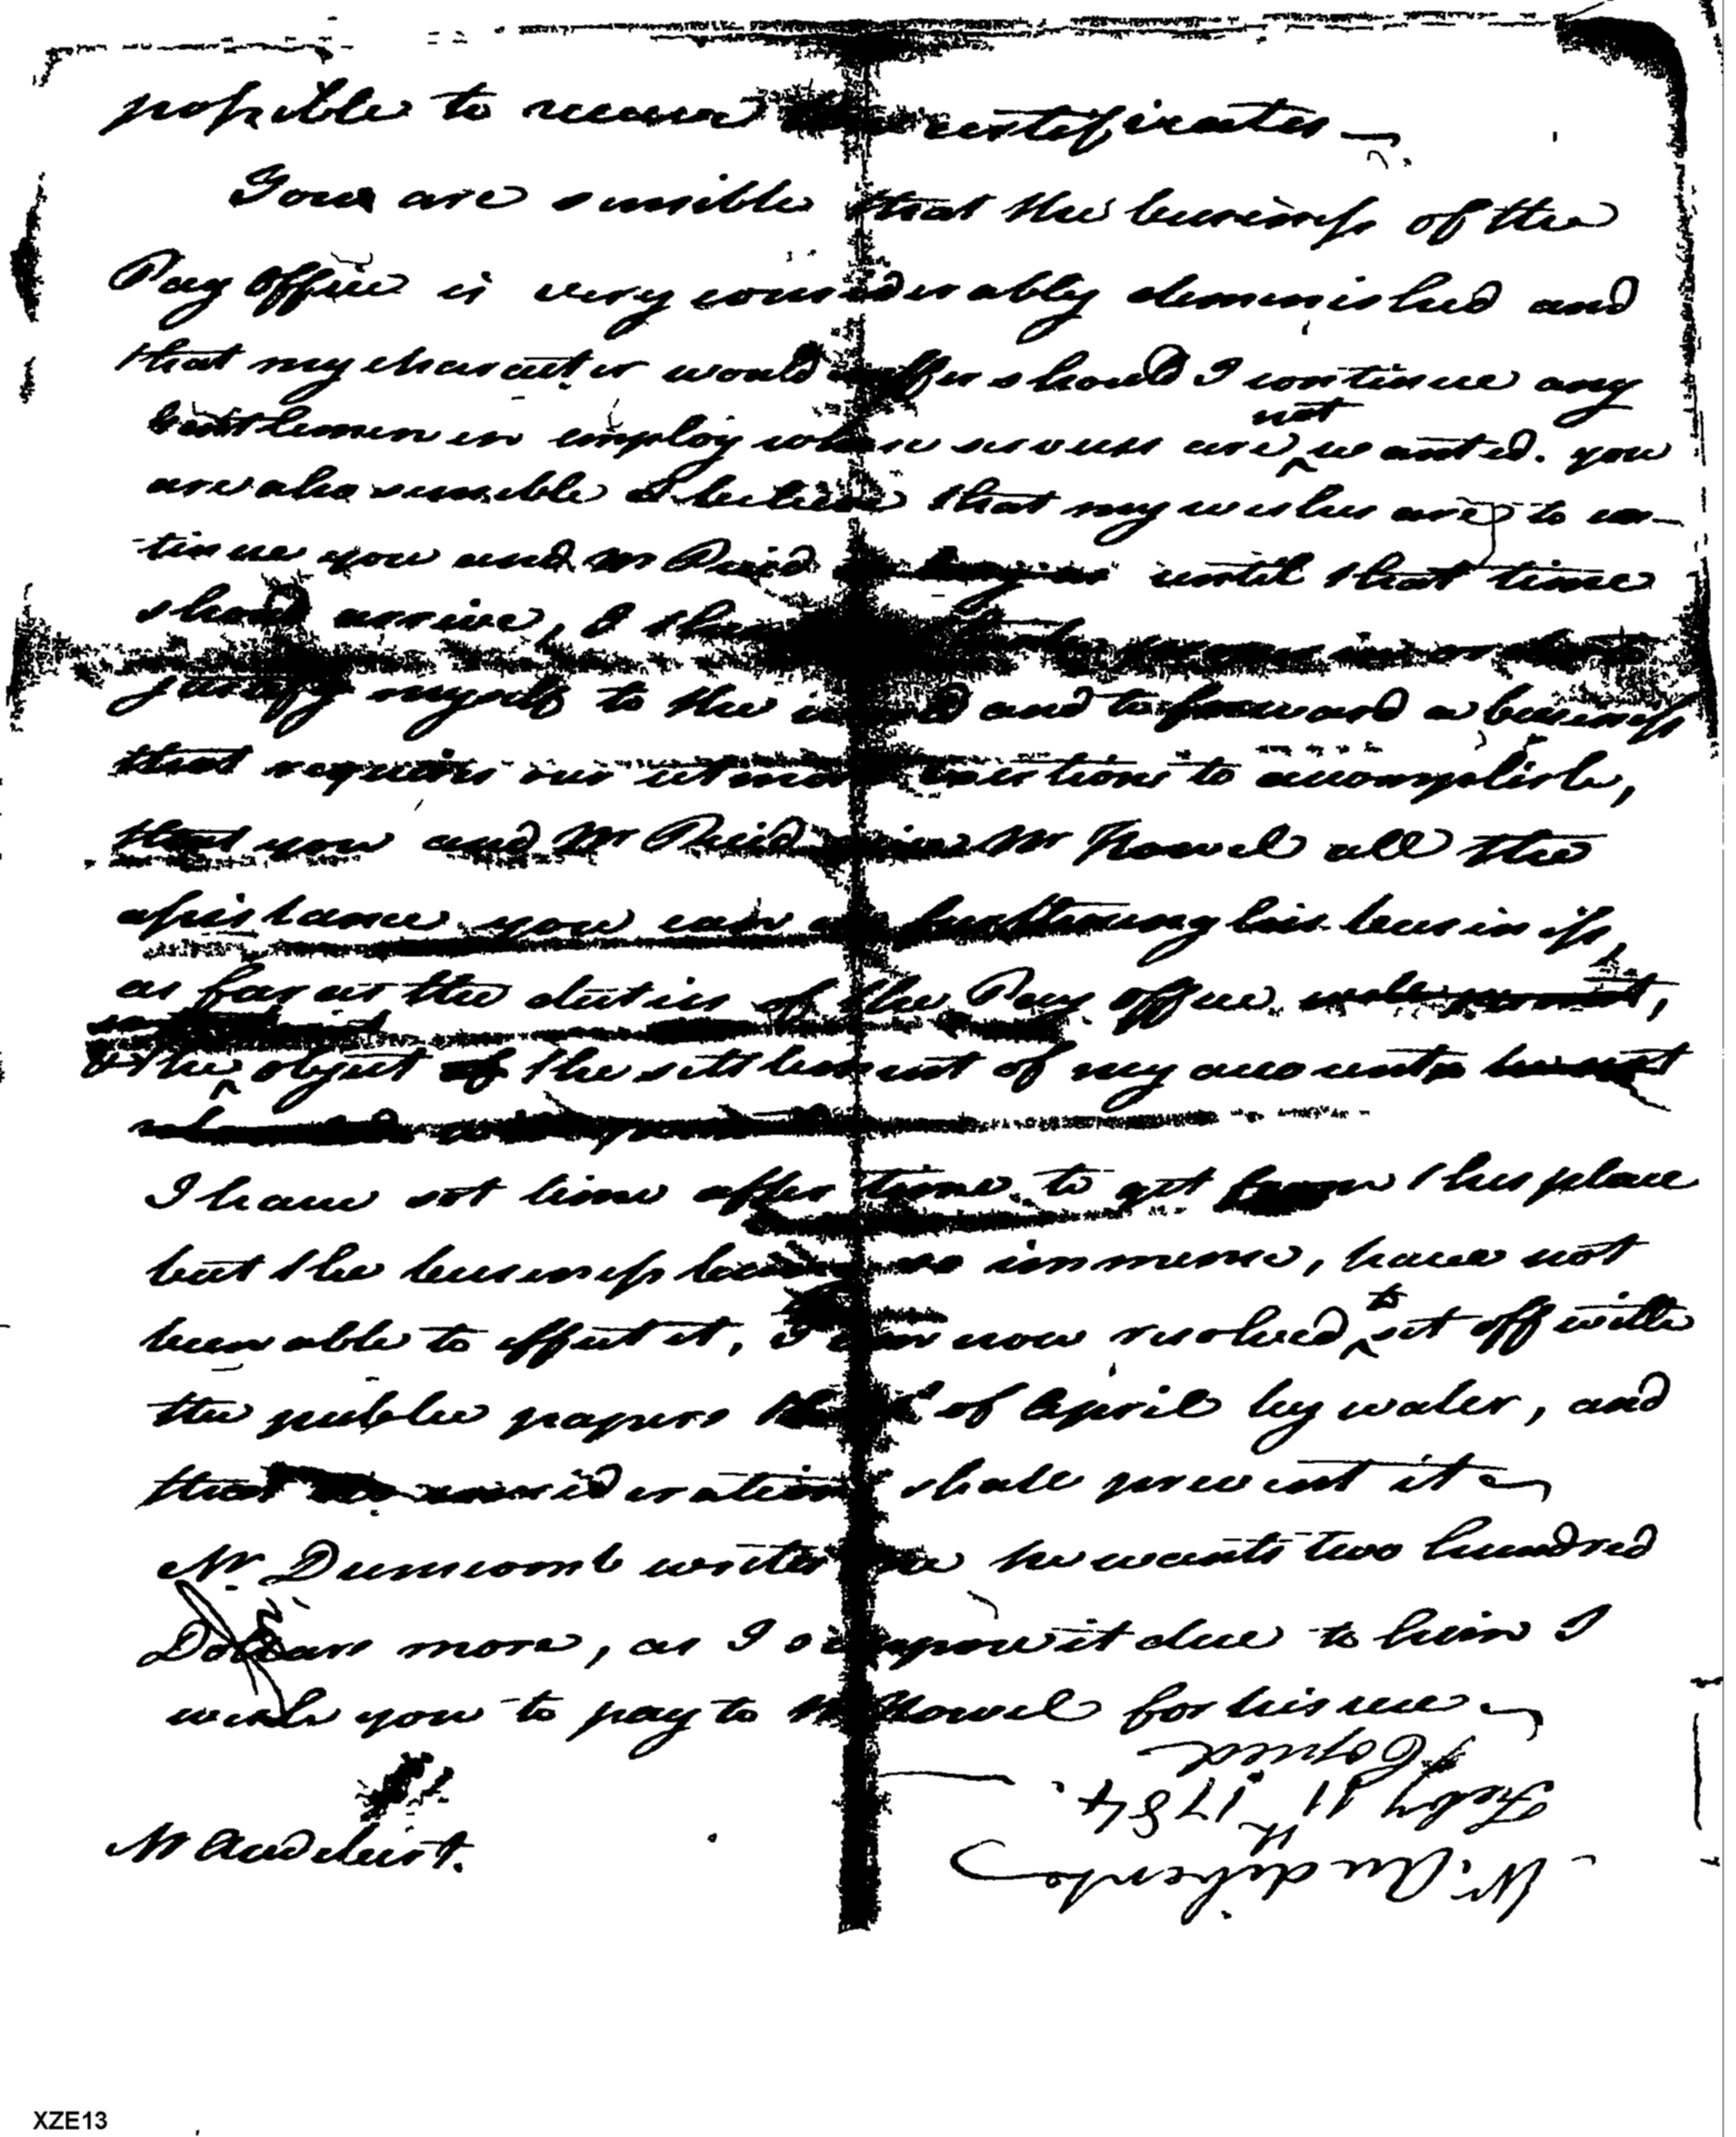 possible to recover the certificates —
You are sensible that the business of the
Pay Office is very considerably diminished and
that my character would suffer should I continue any
Gentlemen in employ whose services are not wanted. you
are also sensible I believe that my wishes are to con-
tinue you and Mr Reid until that time
should arrive, I in order to
justify myself to the world and to forward a business
that requires our utmost exertions to accomplish,
that you and Mr Reid give Mr Howel all the
assistance you can in his business,
as far as the duties of the Pay office will permit,
& the object of the settlement of my accounts
I have set time after time to get from this place
but the business being so immense, have not
been able to effect it, I am now resolved to set off with
the public papers the of April by water, and
that no consideration shall prevent it —
Mr. Dunscomb writes me he wants two hundred
Dollars more, as I suppose it due to him I
wish you to pay to Mr Howel for his use —
Mr Audibert.
Mr. Audibert
Feby 11th 1784.
Copied
XZE13